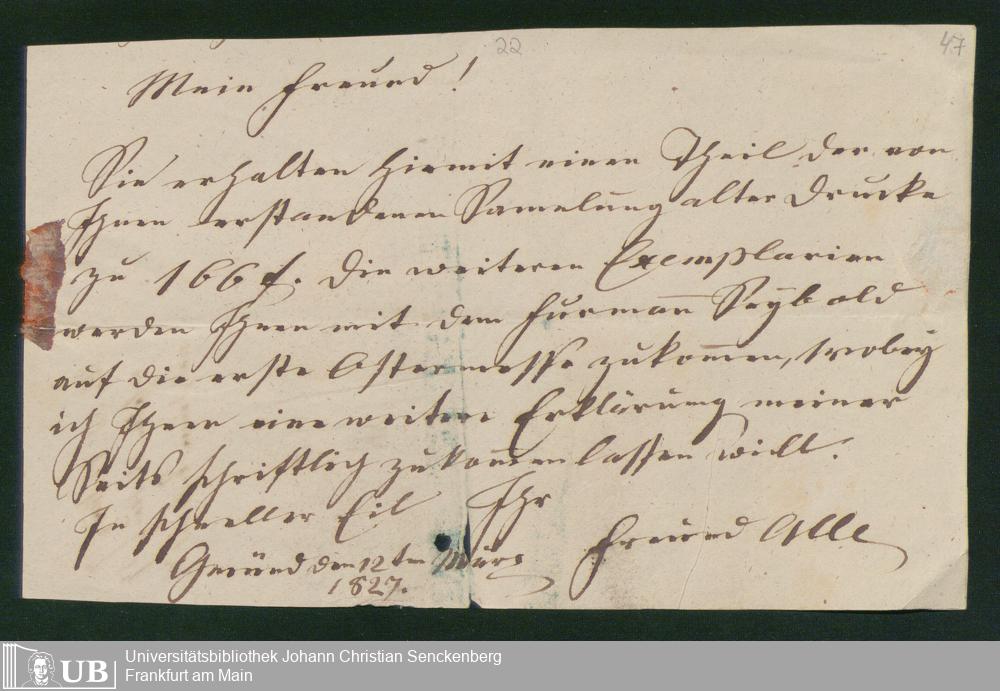 22
47
Mein Freund!
Sie erhalten hiermit einen Theil der von
Ihnen erstandenen Samelung alter Drucke
zu 166 f. Die weiteren Exemplarien
werden Ihnen mit dem Furmann Seybold
auf die erste Ostermesse zukommen, wobey
ich Ihnen eine weitere Erklärung meiner
Seits schriftlich zukommen lassen will.
In schneller Eil Ihr
Freund Alle
Gmünd den 12ten März
1827.
UB
Universitätsbibliothek Johann Christian Senckenberg
Frankfurt am Main